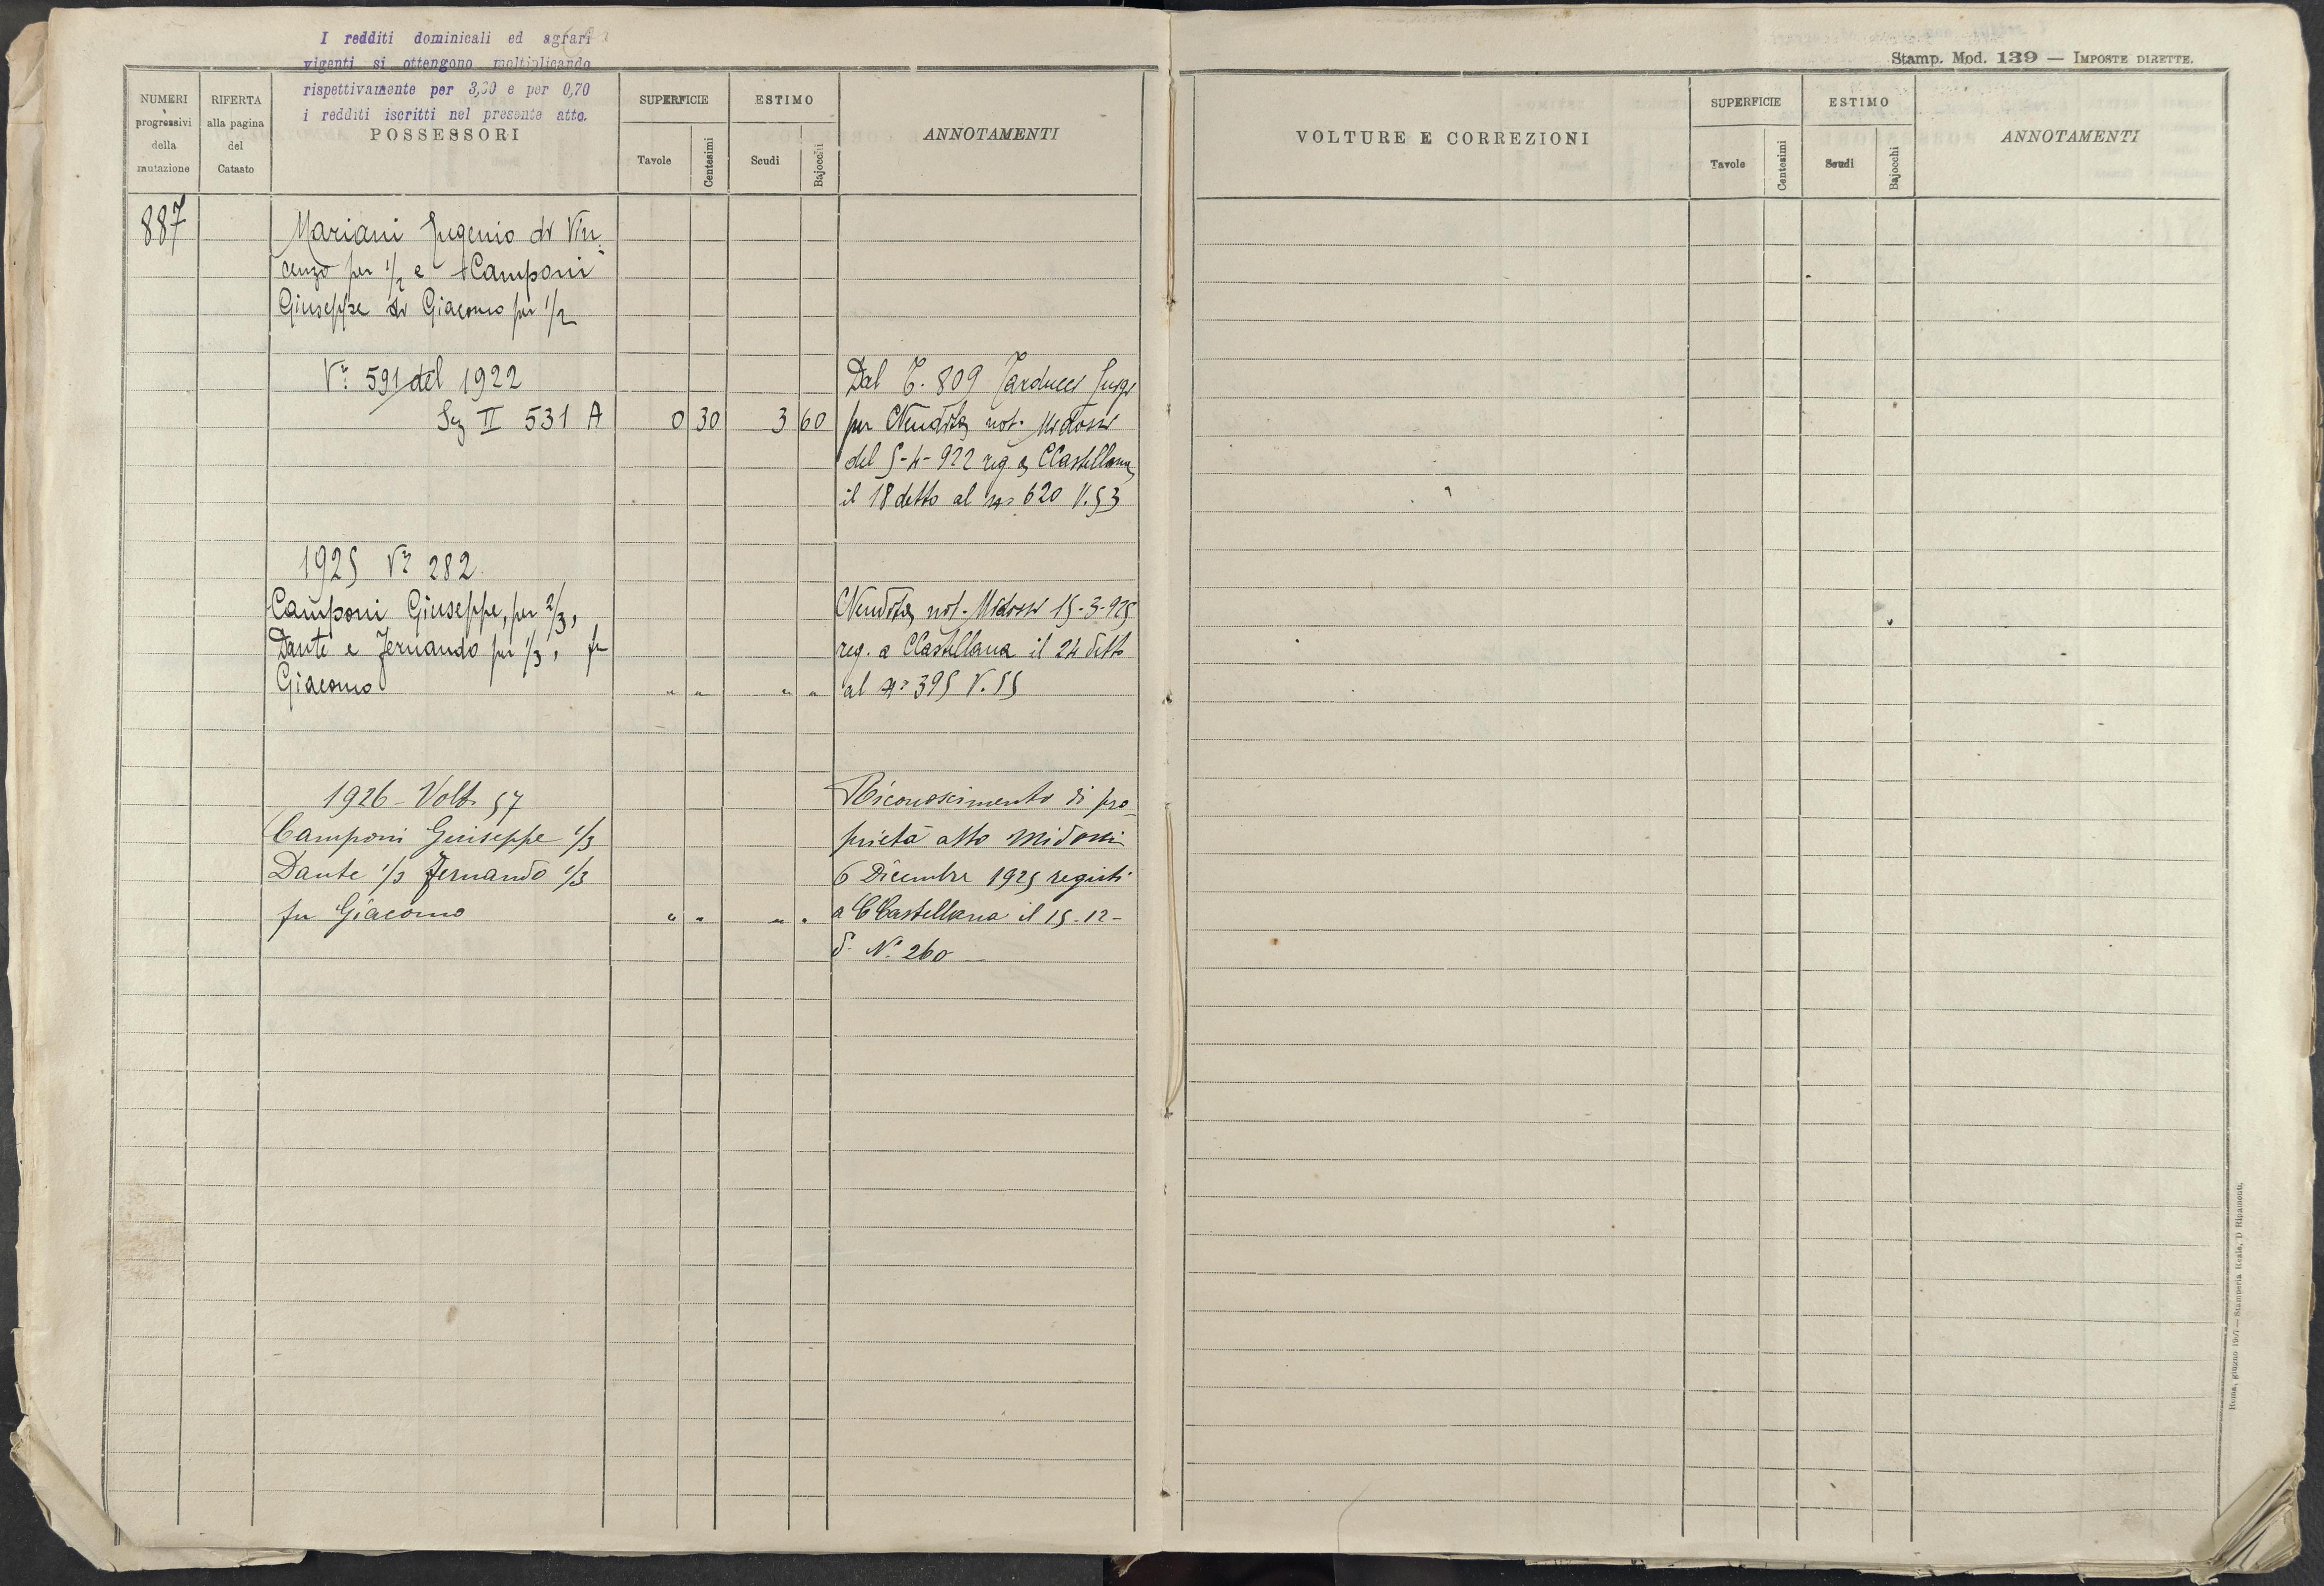 I redditi dominicali ed agrari
vigenti si ottengono moltiplicando
rispettivamente per 3,60 e per 0,70
i redditi iscritti nel presente atto.
NUMERI progressivi della mutazione
RIFERTA alla pagina del Catasto
POSSESSORI
SUPERFICIE
Tavole
Centesimi
ESTIMO
Scudi
Bajocchi
ANNOTAMENTI
887
Mariani Eugenio di Vin-
cenzo per 1/2 e Camponi
Giuseppe di Giacomo per 1/2
Vª 591 del 1922
Dal C. 809 Tarducci Luigi
Sez II 531 A 0 30 3 60
per CVendita not. Midossi
del 5-4-922 reg. a CCastellana
il 18 detto al nº 620 V. 53
1925 Vª 282
Camponi Giuseppe, per 2/3,
Dante e Fernando per 1/3, fu
Giacomo " " " "
CVendita not. Midossi 15-3-925
reg. a CCastellana il 24 detto
al nº 395 V. 55
1926 - Volt. 57
Camponi Giuseppe 1/3
Dante 1/3 Fernando 1/3
fu Giacomo " " " "
Riconoscimento di pro-
prietà atto Midossi
6 Dicembre 1925 registi
a CCastellana il 15-12-
d. N. 260
Stamp. Mod. 139 — IMPOSTE DIRETTE.
VOLTURE E CORREZIONI
SUPERFICIE
Tavole
Centesimi
ESTIMO
Scudi
Bajocchi
ANNOTAMENTI
Roma, giugno — Stamperia Reale, D Ripamonti.